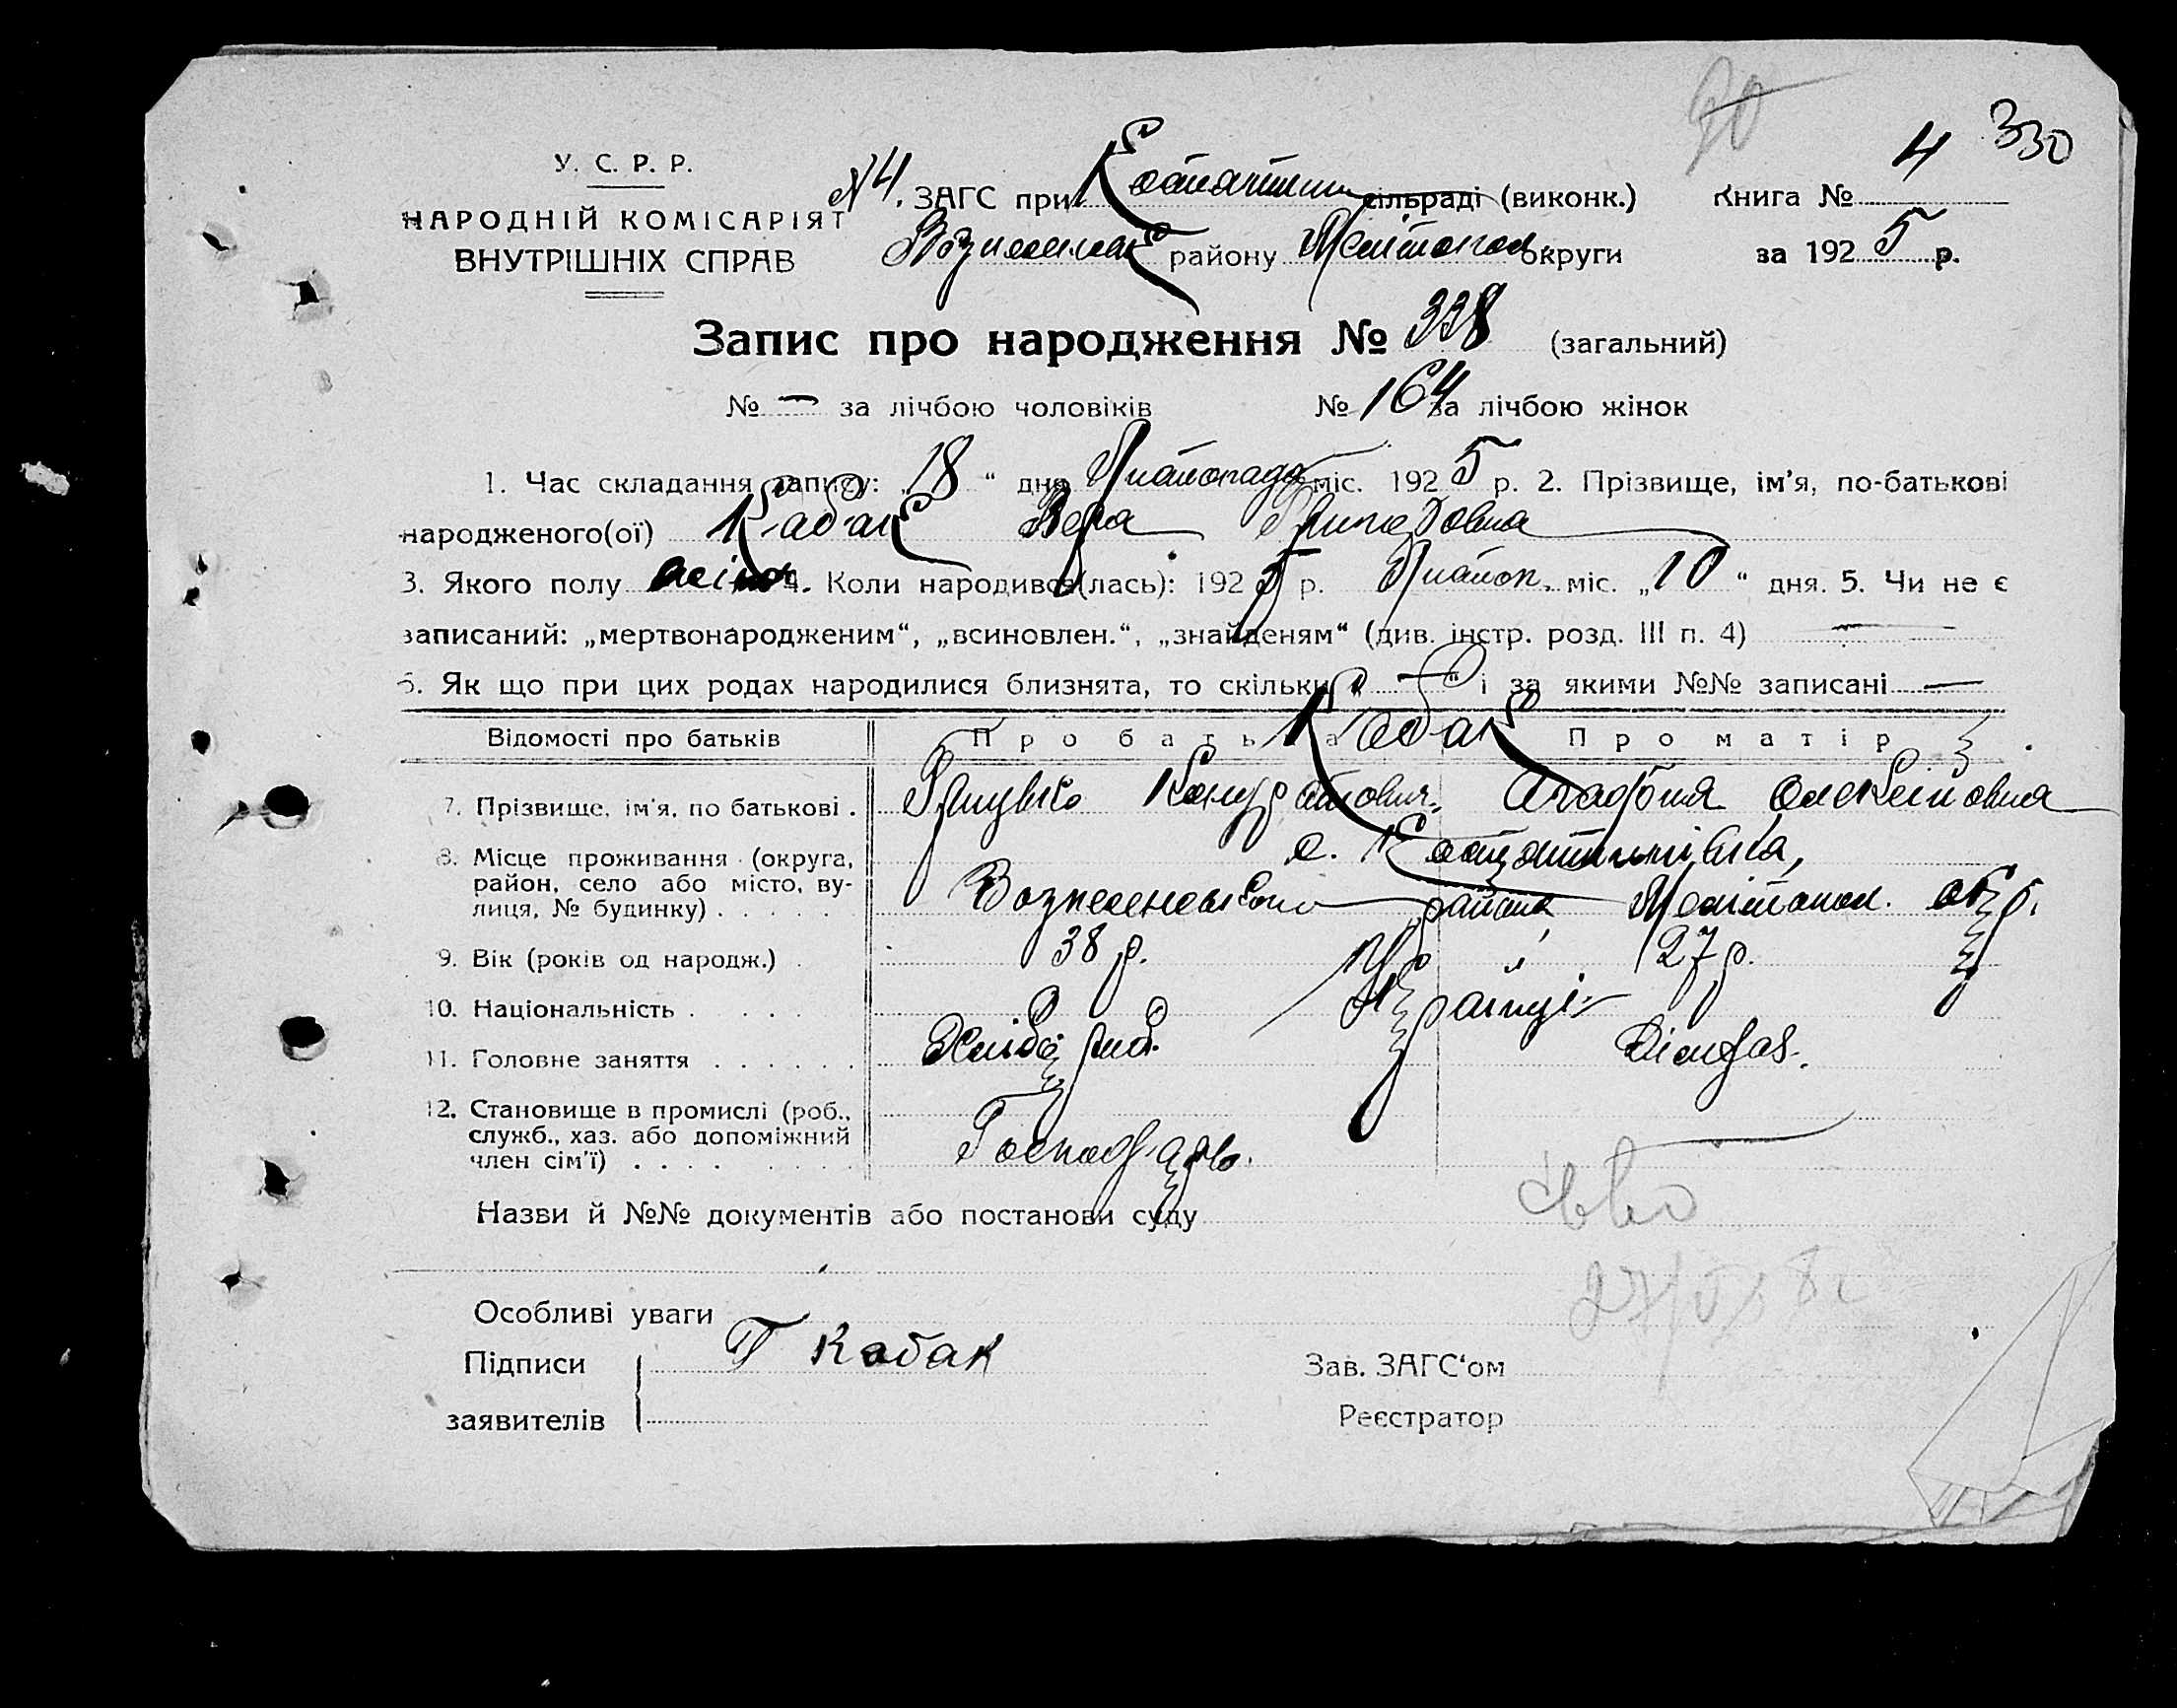 90
4 330
У. С. Р. Р.
НАРОДНІЙ КОМІСАРІЯТ
ВНУТРІШНІХ СПРАВ
№ 4. ЗАГС при Костянтин сільраді (виконк.) Книга №
району Мелітопол округи за 1925 р.
Запис про народження № 338 (загальний)
№ — за лічбою чоловіків № 164 за лічбою жінок
1. Час складання запису: „18“ дня Листопада міс. 1925 р. 2. Прізвище, ім'я, по-батькові
народженого(ої) Кабак Вера
3. Якого полу жіноч. 4. Коли народився(лась): 1925 р. Листоп. міс. „10“ дня. 5. Чи не є
записаний: „мертвонародженим“, „всиновлен.“, „знайденям“ (див. інстр. розд. III п. 4) —
6. Як що при цих родах народилися близнята, то скільки „—“ і за якими №№ записані —
Відомості про батьків Про батька Про матір
Кабак
7. Прізвище, ім'я, по батькові . Грицько Кондратович. Агафия Олексійовна
8. Місце проживання (округа, район, село або місто, вулиця, № будинку) . . . . . с. Костянтинівка,
Вознесенського району Мелітопол. окр.
9. Вік (років од народж.) . 38 р. 27 р.
10. Національність . . . . Українці
11. Головне заняття . . . . . . Хлібороб.
12. Становище в промислі (роб., служб., хаз. або допоміжний член сім'ї) . . . . Господарь.
Назви й №№ документів або постанови суду
Особливі уваги
Підписи Г Кабак Зав. ЗАГС'ом
заявителів Реєстратор